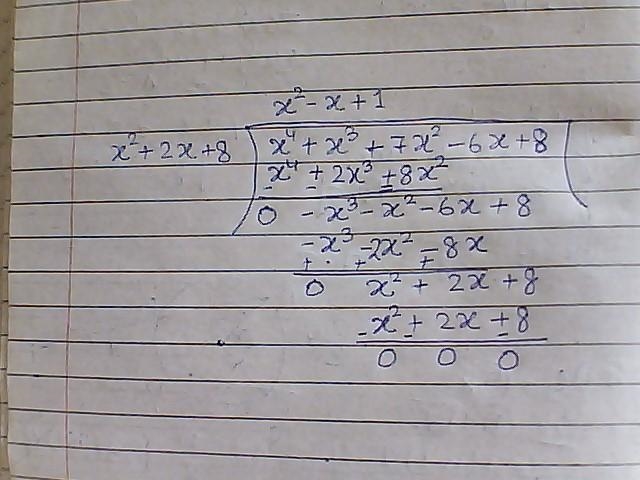 x² - x + 1
x² + 2x + 8 ) x⁴ + x³ + 7x² - 6x + 8 (
x⁴ + 2x³ + 8x²
- - -
0 - x³ - x² - 6x + 8
- x³ - 2x² - 8x
+ + +
0 x² + 2x + 8
x² + 2x + 8
- - -
0 0 0